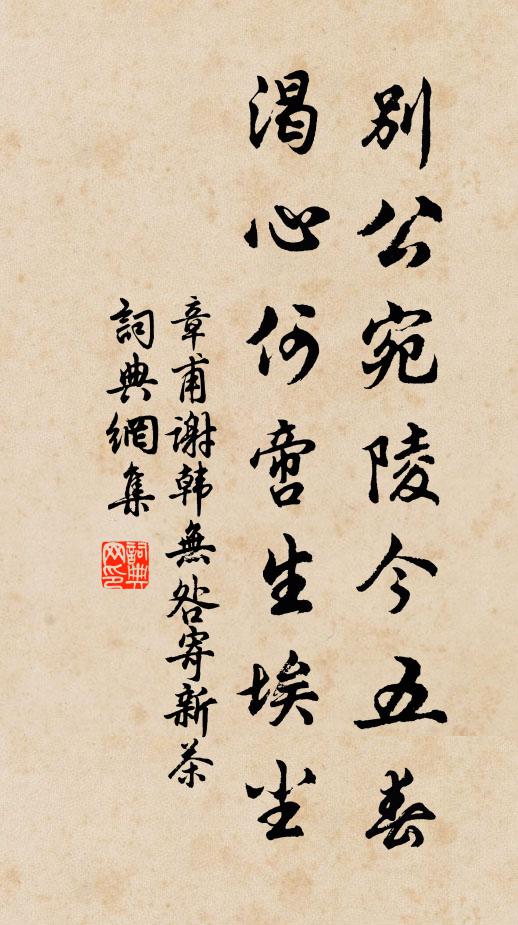 別公宛陵今五春
渴心何啻生埃尘
章甫谢韩無咎寄新茶
詞典網集
詞典网印